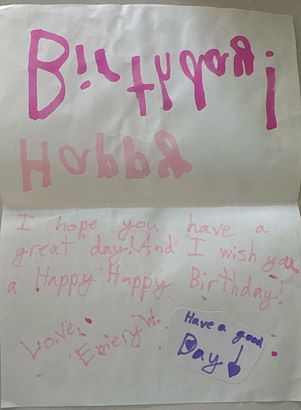 Birthday!
Happy
I hope you have a
great day! And I wish you
a Happy Happy Birthday!
Love,
Emeryk
Have a good
Day